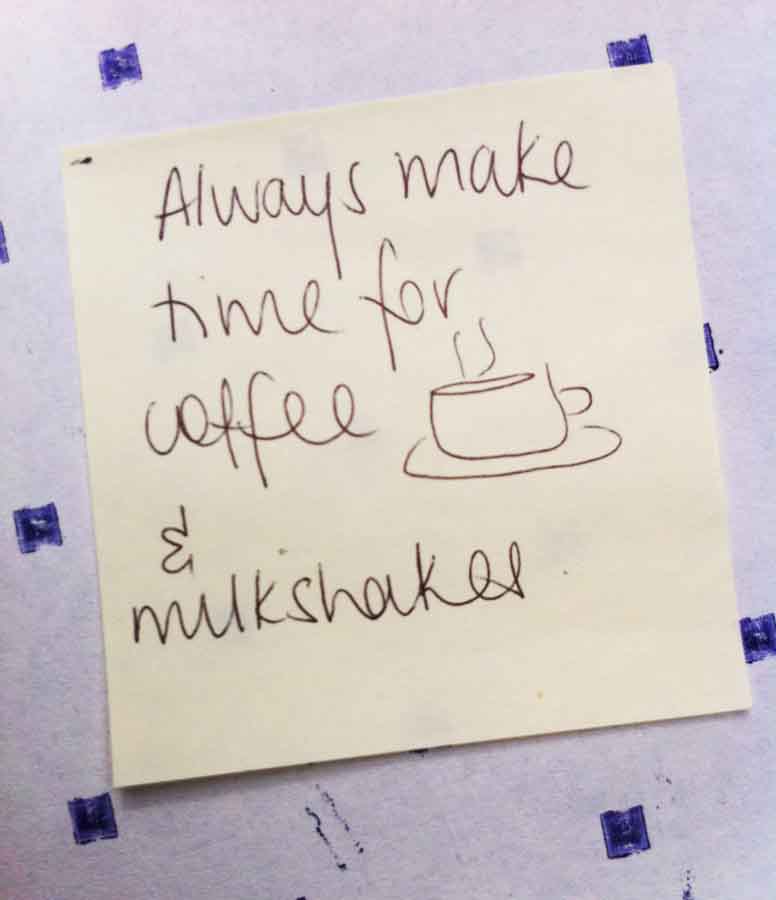 Always make
time for
coffee
&
milkshakes